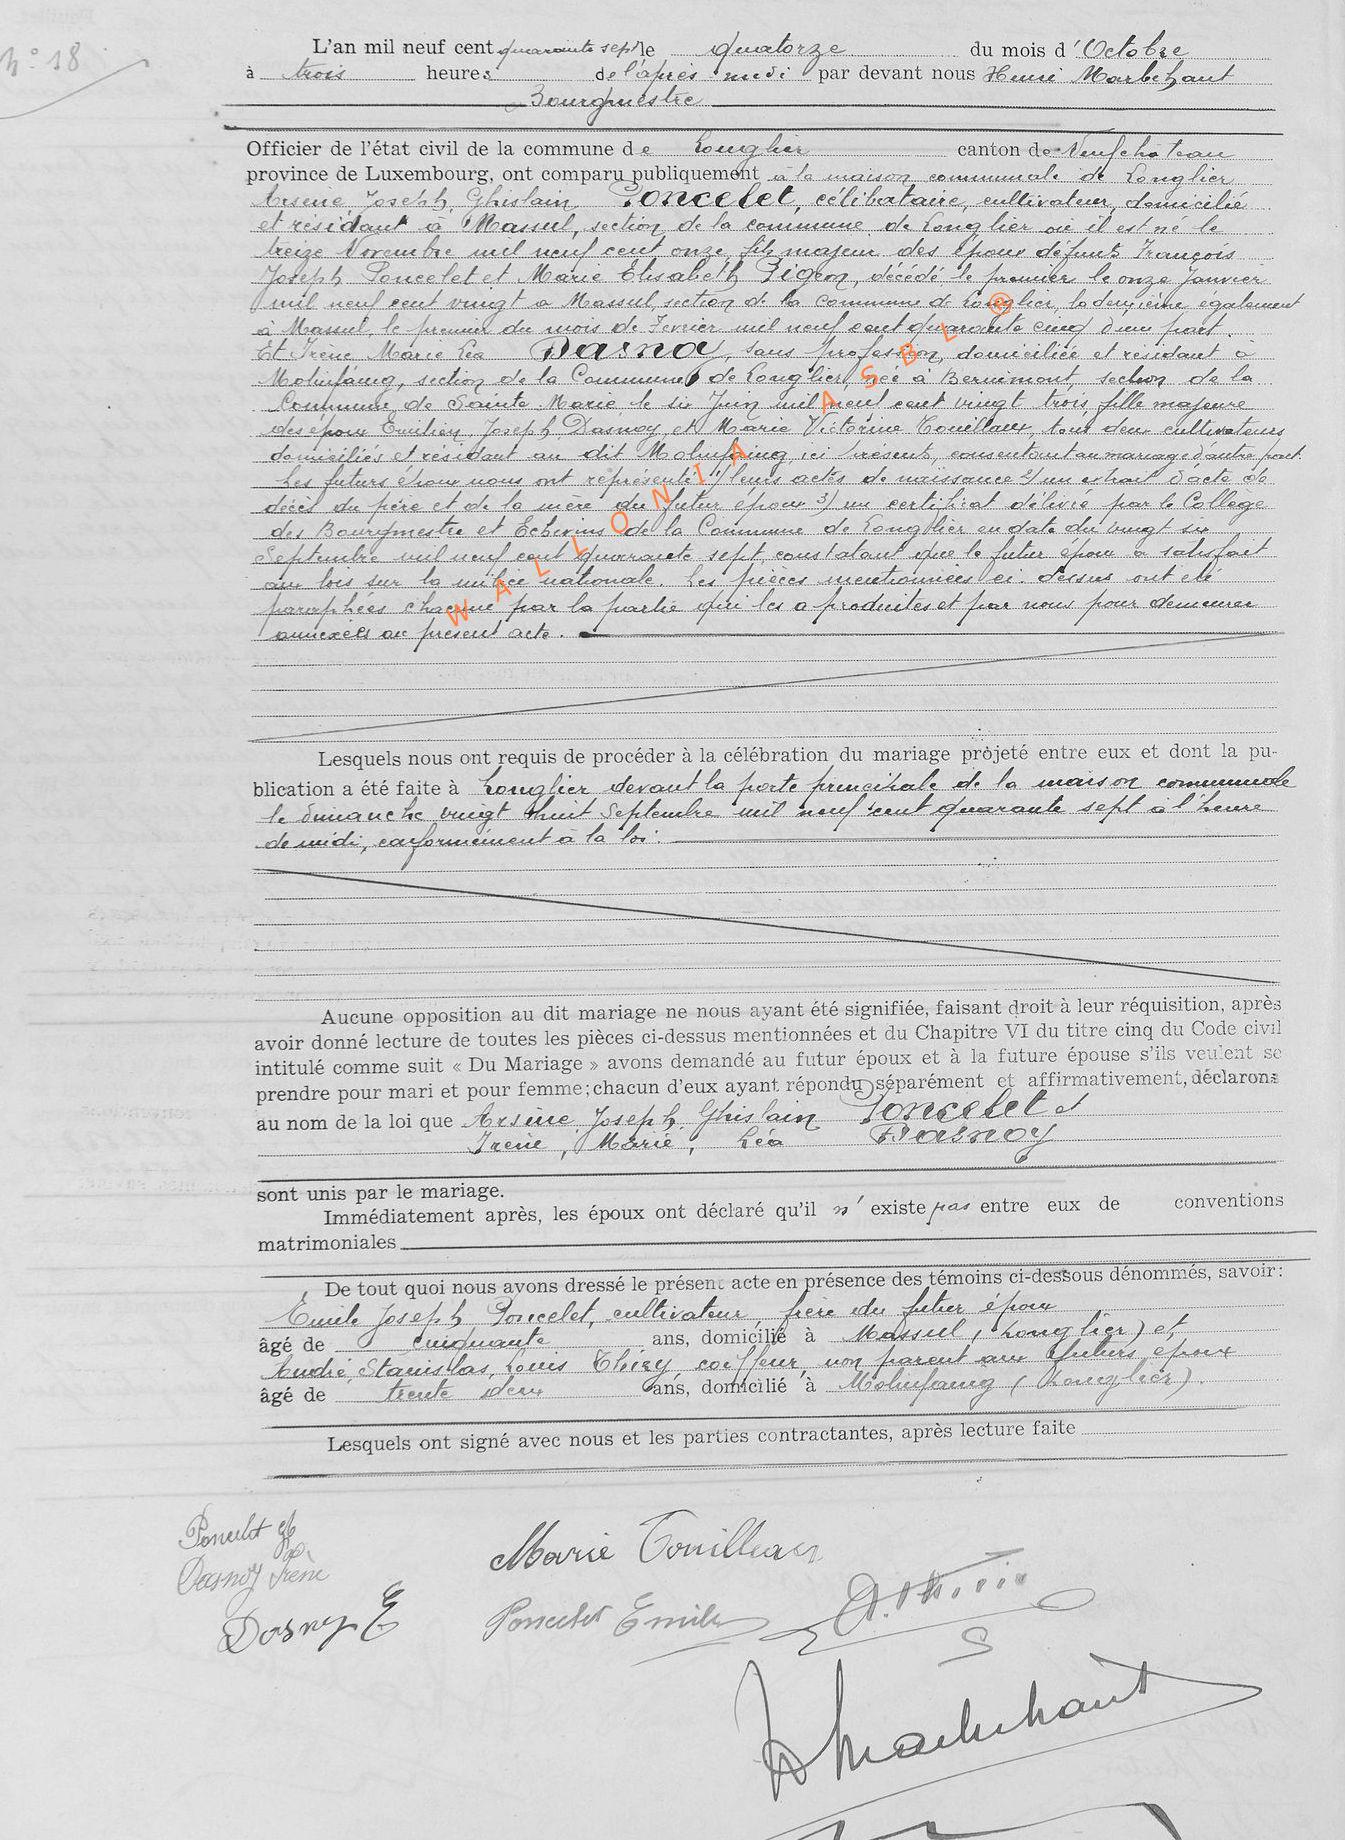 N° 18
L'an mil neuf cent quarante sept le quatorze du mois d'Octobre
à trois heures de l'après midi par devant nous Henri Marbehant
Bourgmestre
Officier de l'état civil de la commune de Longlier canton de Neufchâteau
province de Luxembourg, ont comparu publiquement à la maison communale de Longlier
Arsène Joseph, Ghislain Poncelet, célibataire, cultivateur, domicilié
et résidant à Massul, section de la commune de Longlier où il est né le
treize Novembre mil neuf cent onze, fils majeur des époux défunts François
Joseph Poncelet et Marie Elisabeth Pigeon, décédé le premier le onze Janvier
mil neuf cent vingt à Massul, section de la commune de Longlier, la deuxième également
à Massul, le premier du mois de Fevrier mil neuf cent quarante cinq d'une part.
Et Irène Marie Léa Dasnoy, sans profession, domiciliée et résidant à
Molinfaing, section de la Commune de Longlier, née à Bernimont, section de la
Commune de Sainte Marie, le six Juin mil neuf cent vingt trois, fille majeure
des époux Emilien, Joseph Dasnoy et Marie Victorine Touillaux, tous deux cultivateurs
domiciliés et résidant au dit Molinfaing, ici présents, consentant au mariage d'autre part.
Les futurs époux nous ont représenté 1) leurs actes de naissance 2) un extrait d'acte de
décès du père et de la mère du futur époux 3) un certificat délivré par le Collège
des Bourgmestre et Echevins de la Commune de Longlier en date du vingt six
Septembre mil neuf cent quarante sept, constatant que le futur époux a satisfait
aux lois sur la milice nationale. Les pièces mentionnées ci-dessus ont été
paraphées chacune par la partie qui les a produites et par nous pour demeurer
annexées au présent acte.
WALLONIA ASBL ®
Lesquels nous ont requis de procéder à la célébration du mariage projeté entre eux et dont la pu-
blication a été faite à Longlier devant la porte principale de la maison communale
le dimanche vingt huit Septembre mil neuf cent quarante sept à l'heure
de midi, conformément à la loi.
Aucune opposition au dit mariage ne nous ayant été signifiée, faisant droit à leur réquisition, après
avoir donné lecture de toutes les pièces ci-dessus mentionnées et du Chapitre VI du titre cinq du Code civil
intitulé comme suit « Du Mariage » avons demandé au futur époux et à la future épouse s'ils veulent se
prendre pour mari et pour femme; chacun d'eux ayant répondu séparément et affirmativement, déclarons
au nom de la loi que Arsène, Joseph, Ghislain Poncelet et
Irène, Marie, Léa Dasnoy
sont unis par le mariage.
Immédiatement après, les époux ont déclaré qu'il n'existe pas entre eux de conventions
matrimoniales
De tout quoi nous avons dressé le présent acte en présence des témoins ci-dessous dénommés, savoir:
Emile Joseph Poncelet, cultivateur, frère du futur époux
âgé de cinquante ans, domicilié à Massul (Longlier) et
André, Stanislas, Louis Thiry coiffeur, non parent aux futurs époux
âgé de trente deux ans, domicilié à Molinfaing (Longlier).
Lesquels ont signé avec nous et les parties contractantes, après lecture faite
Poncelet
Dasnoy Irène
Dasnoy E
Marie Touillaux
Poncelet Emile
Marbehant